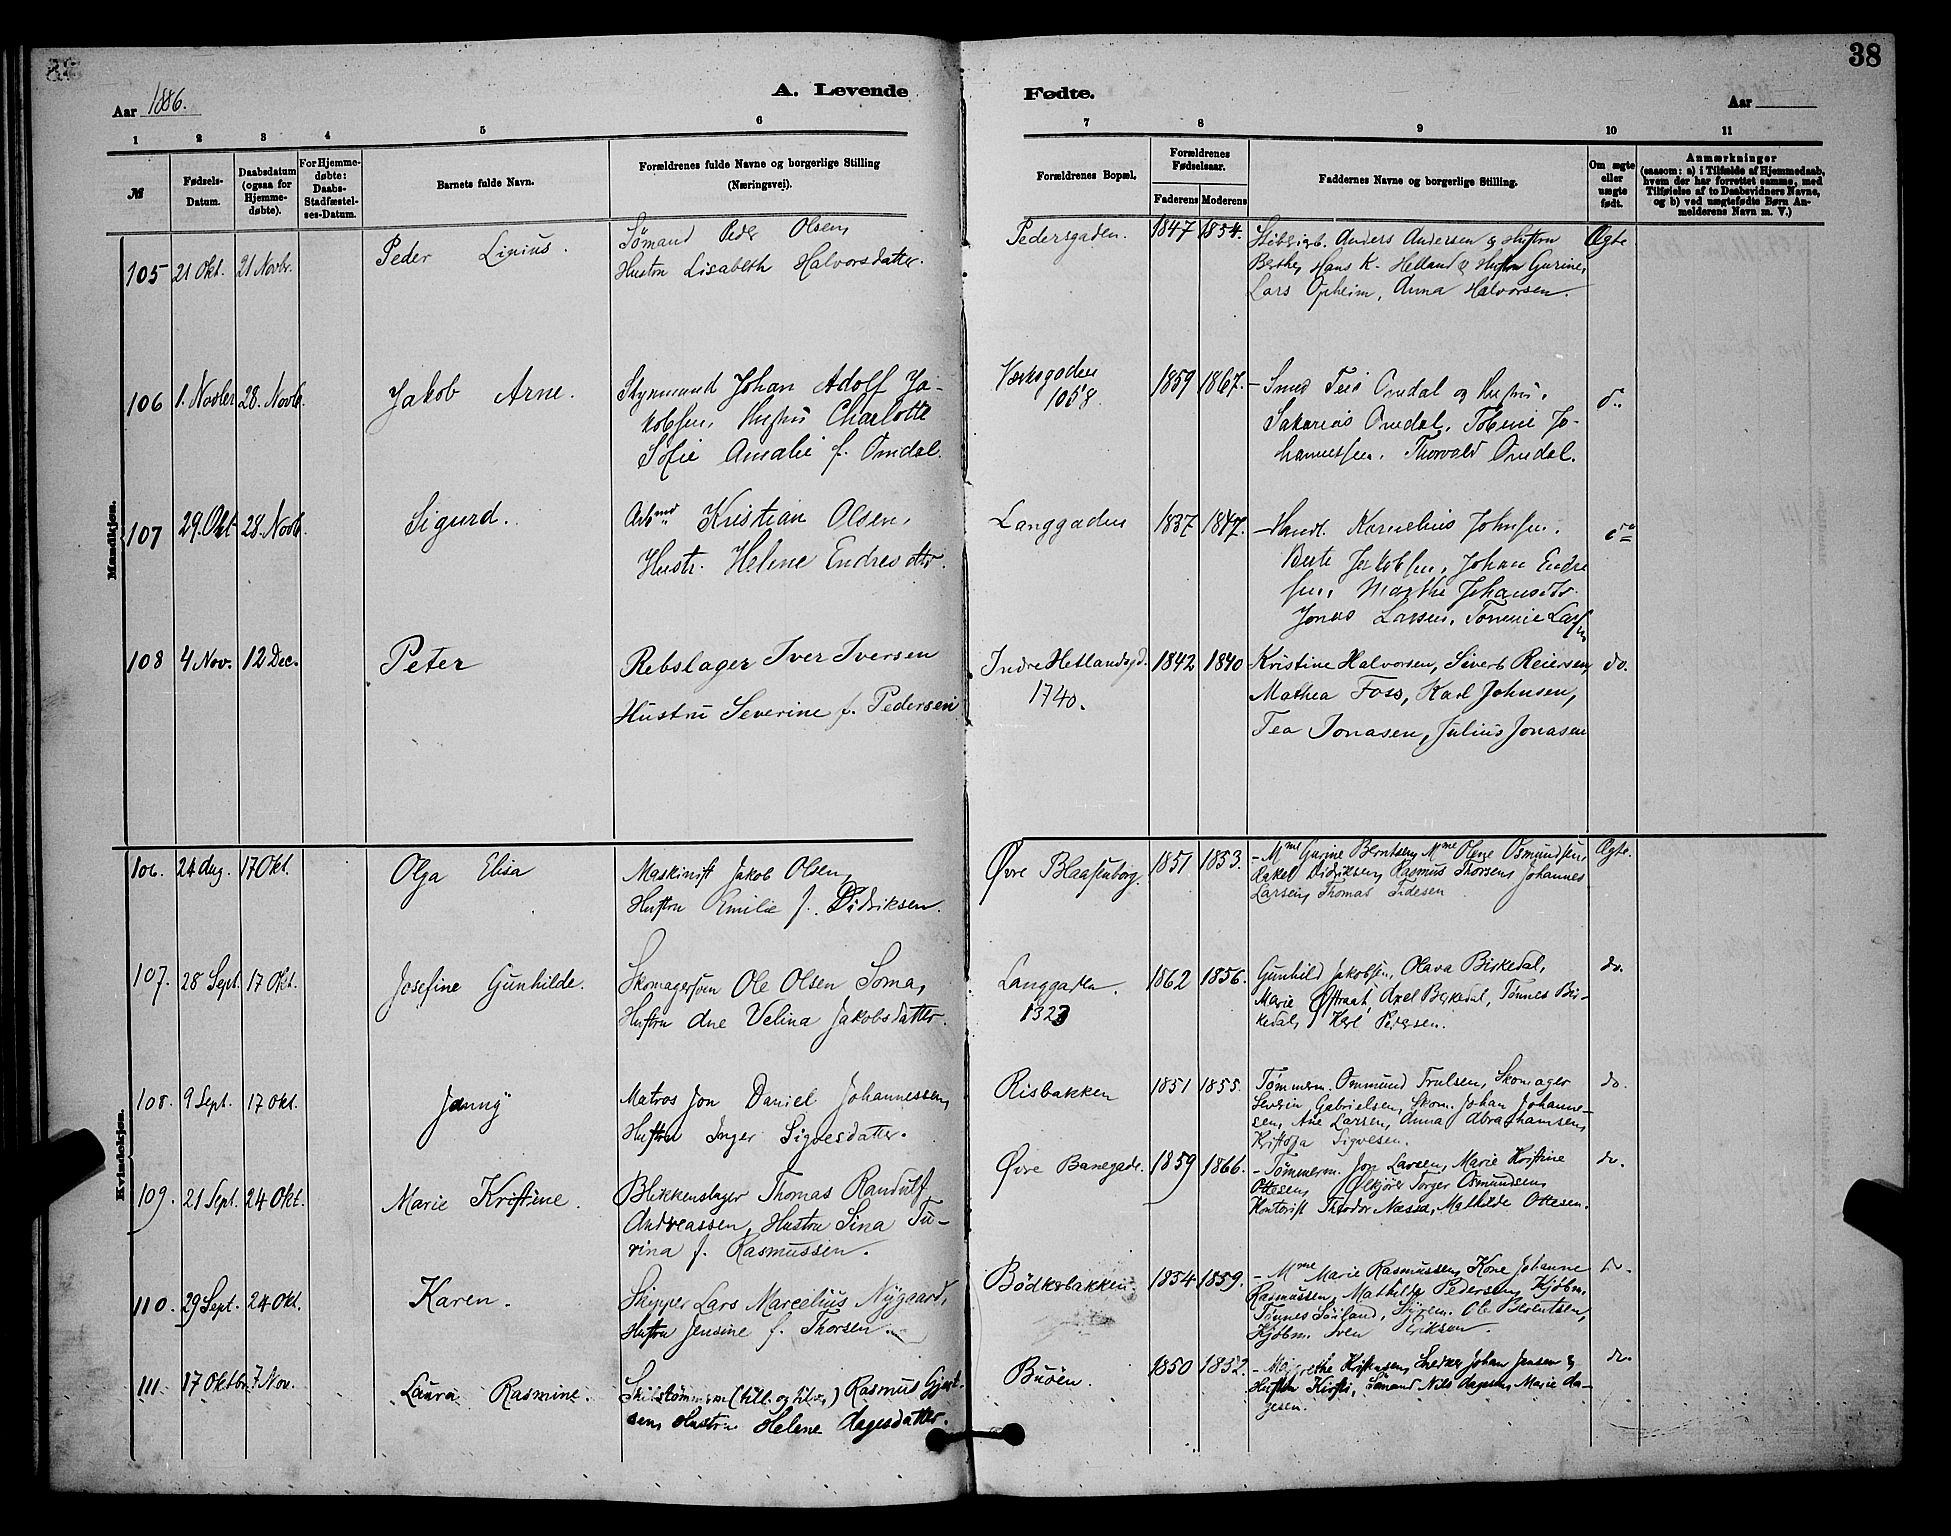 38
Aar 1886.
A. Levende Fødte.
Aar
1 2 3 4 5 6 7 8 9 10 11
№
Fødsels-Datum.
Daabsdatum (ogsaa for Hjemmedøbte).
For Hjemmedøbte: Daabs-Stadfæstelses-Datum.
Barnets fulde Navn.
Forældrenes fulde Navne og borgerlige Stilling
(Næringsvej).
Forældrenes Bopæl.
Forældrenes Fødselsaar.
Faderens Moderens
Faddernes Navne og borgerlige Stilling.
Om ægte eller uægte født.
Anmærkninger
(saasom: a) i Tilfælde af Hjemmedaab,
hvem der har forrettet samme, med
Tilføielse af to Daabsvidners Navne,
og b) ved uægtefødte Børn Anmelderens Navn m. V.)
Mandkjøn.
105 21 Okt. 21 Novbr. Peder Linius. Sømand Peder Olsen, Pedersgaden. 1847 1854. Anders Andersen & Hustru Ægte
Hustru Lisabeth Halvorsdatter. Berthe, Hans K. Helland & Hustru Gurine,
Lars Opheim, Anna Halvorsen.
106 1. Novbr 28. Novb. Jakob Arne. Styrmand Johan Adolf Ja- Værksgaden 1859 1867. Smed Teis Omdal og Hustru, do.
kobsen, Hustru Charlotte 1058. Sakarias Omdal, Tobine Jo-
Sofie Amalie f. Omdal. hannessen, Thorvald Omdal.
107 29. Okt 28. Novb. Sigurd. Arbmd. Kristian Olsen, Langgaden 1837 1847. Handl. Kornelius Johnsen, do
Hustr. Helene Endresdtr. Berte Jakobsen, Johan Endre
sen, Marthe Johansdtr
Jonas Larsen, Tomine Larsen
108 4 Nov. 12 Dec. Peter Rebslager Iver Iversen Indre Hetlandsgd. 1842 1840 Kristine Halvorsen, Sivert Reiersen, do.
Hustru Severine f. Pedersen 1740. Mathea Foss, Karl Johnsen,
Tea Jonasen, Julius Jonasen
Kvindekjøn.
106. 24 Aug. 17 Okt. Olga Elisa Maskinist Jakob Olsen, Øvre Blaasenborg. 1851 1853. Mme Gurine Berntsen, Mme Olene Osmundsen, Ægte.
Hustru Emilie f. Didriksen. Rakel Didriksen, Rasmus Thorsen, Johannes
Larsen, Thomas Tidesen
107. 28 Sept. 17 Okt. Josefine Gunhilde. Skomagersven Ole Olsen Soma, Langgaden. 1862 1856. Gunhild Jakobsen, Olava Birkedal, do.
Hustru Ane Velina Jakobsdatter. 1323 Marie Østraat, Axel Birkedal, Tønnes Bir-
kedal, Karl Pedersen.
108. 9 Sept. 17 Okt. Janny Matros Jon Daniel Johannessen, Risbakken 1851 1855. Tømmerm. Ommund Trulsen, Skomager do.
Hustru Inger Sigvesdatter. Severin Gabrielsen, Skom. Johan Johanne-
sen, Ane Larsen, Anna Abrahamsen,
Kristofa Sigvesen.
109. 21 Sept. 24 Okt. Marie Kristine. Blikkenslager Thomas Randulf Øvre Banegade. 1859 1866. Tømmerm. Jon Larsen, Marie Kristine do.
Andreassen, Hustru Sina Tu- Ottesen, Ølkjører Torger Osmundsen,
rina f. Rasmussen. Kontorist Theodor Næsse, Mathilde Ottesen.
110. 29 Sept. 24 Okt. Karen. Skipper Lars Marcelius Nygaard, Bødkerbakken 1854 1859. Mme Marie Rasmussen, Kone Johanne do.
Hustru Jensine f. Thorsen. Rasmussen, Mathilde Pedersen, Kjøbm.
Tønnes Sørland, Styrm. Ole Berentsen,
Kjøbm. Sven Eriksen.
111. 17 Oktbr. 7 Nov. Laura Rasmine. Skibstømmerm (till. og tilv.) Rasmus Gjert- Buøen. 1850 1852. Margrethe Kristensen, Snedker Johan Jensen & do.
sen, Hustru Helene Aagesdatter. Hustru Kirsti, Sømand Nils Aagesen, Marie Aa-
gesen.